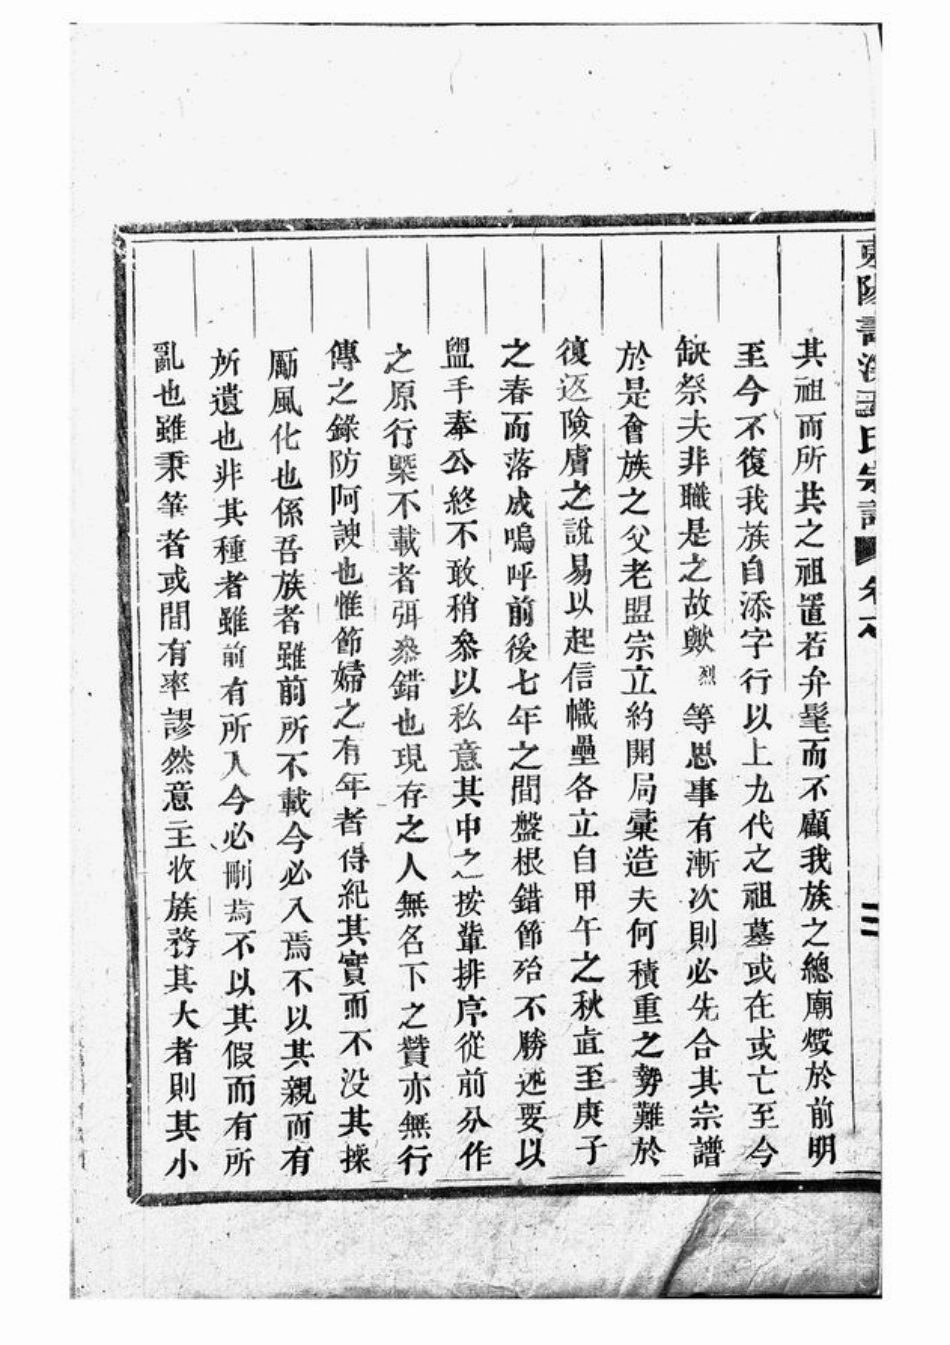 其祖而所共之祖置若弁髦而不顧我族之總廟燬於前明
至今不復我族自添字行以上九代之祖墓或在或亡至今
缺祭夫非職是之故歟烈等思事有漸次則必先合其宗譜
於是會族之父老盟宗立約開局彙造夫何積重之勢難於
復返險膚之說易以起信幟壘各立自甲午之秋直至庚子
之春而落成嗚呼前後七年之間盤根錯節殆不勝述要以
盥手奉公終不敢稍叅以私意其中之按輩排序從前分作
之原行槩不載者弭叅錯也現存之人無名下之贊亦無行
傳之錄防阿諛也惟節婦之有年者得紀其實而不没其操
勵風化也係吾族者雖前所不載今必入焉不以其親而有
所遺也非其種者雖前有所入今必刪焉不以其假而有所
亂也雖秉筆者或間有率謬然意主收族務其大者則其小